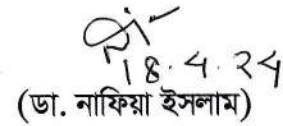 18.4.24
(ডা. নাফিয়া ইসলাম)